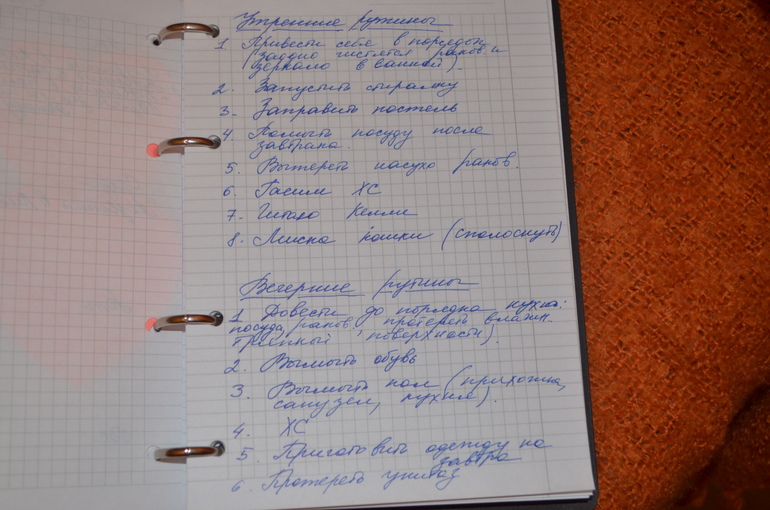 Утренние рутины
1 Привести себя в порядок
(заодно чистятся раков. и
зеркало в ванной).
2. Запустить стиралку
3. Заправить постель
4. Помыть посуду после
завтрака.
5. Вытереть насухо раков.
6. Гасим ХС
7. Читаю Келли
8. Миска кошки (сполоснуть)
Вечерние рутины
1 Довести до порядка кухню:
посуда, раков., протереть влажн.
тряпкой поверхности).
2. Вымыть обувь
3. Вымыть пол (прихожка,
санузел, кухня).
4. ХС
5. Приготовить одежду на
завтра
6. Протереть унитаз